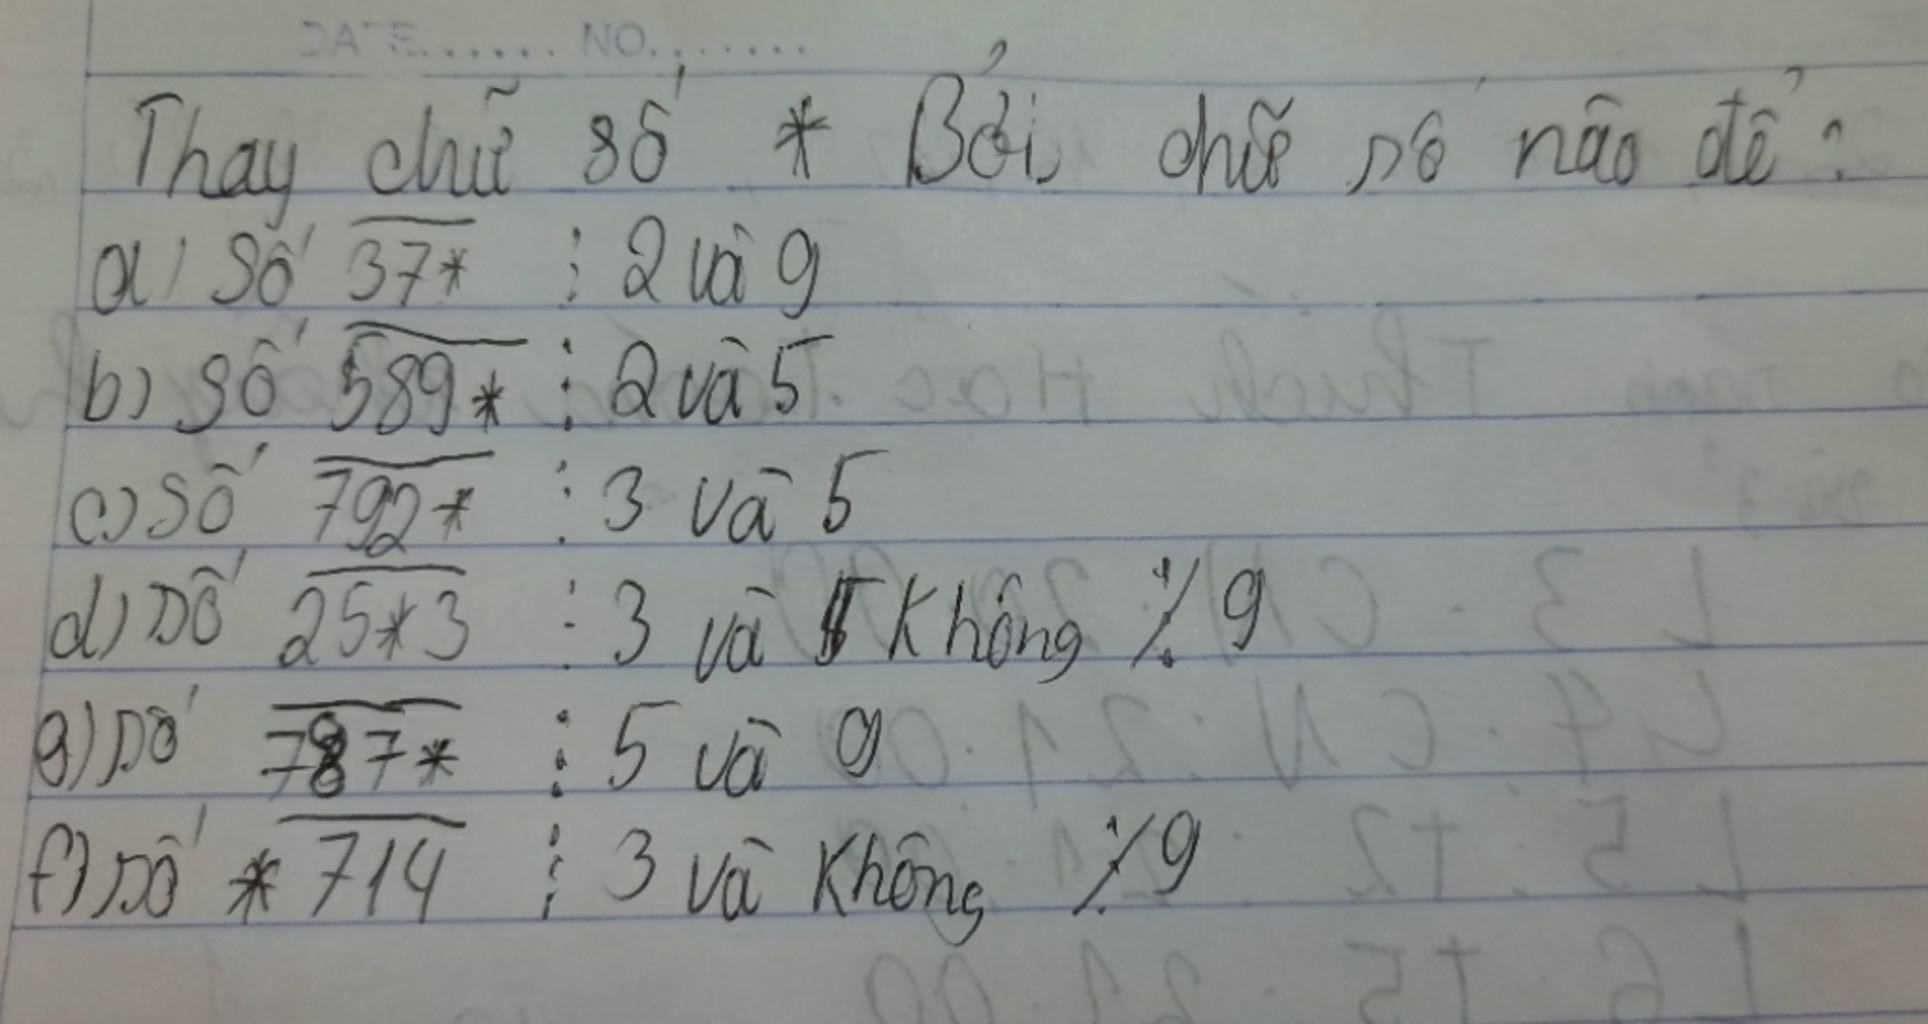 DATE...... NO.......
Thay chữ số * Bởi chữ số nào để:
a) Số 37* ⋮ 2 và 9
b) Số 589* ⋮ 2 và 5
c) Số 792* ⋮ 3 và 5
d) Số 25*3 ⋮ 3 và không ⋮̸ 9
e) Số 787* ⋮ 5 và 9
f) Số *714 ⋮ 3 và không ⋮̸ 9